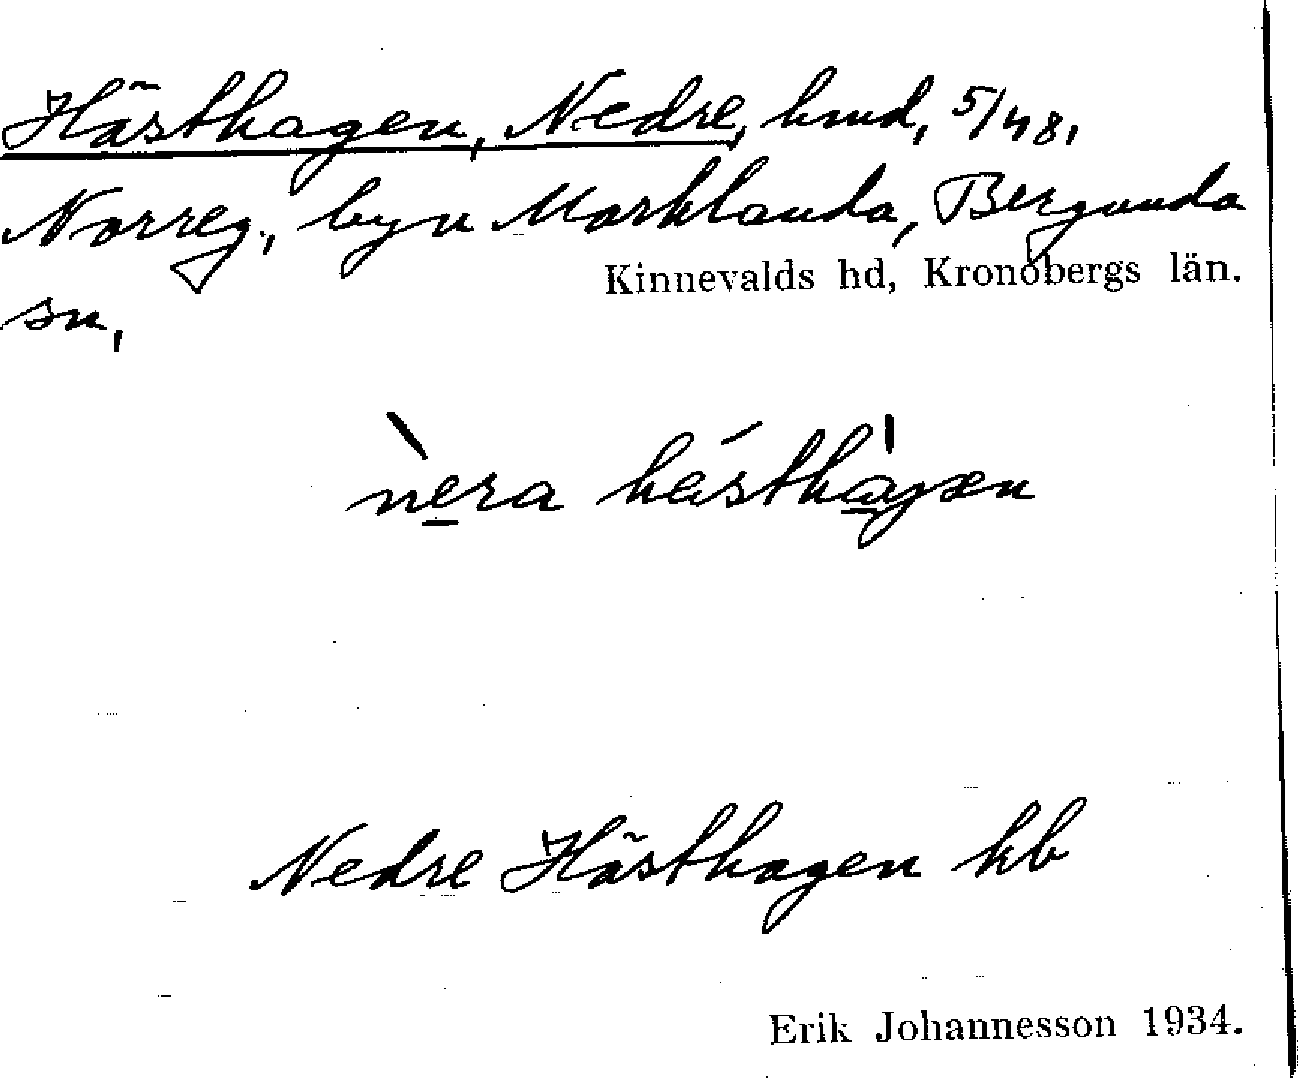 Hästhagen, Nedre, hmd, 5/48,
Norreg., byn Marklanda, Bergunda
Kinnevalds hd, Kronobergs län.
sn,
nera hästhagen
Nedre Hästhagen kb
Erik Johannesson 1934.